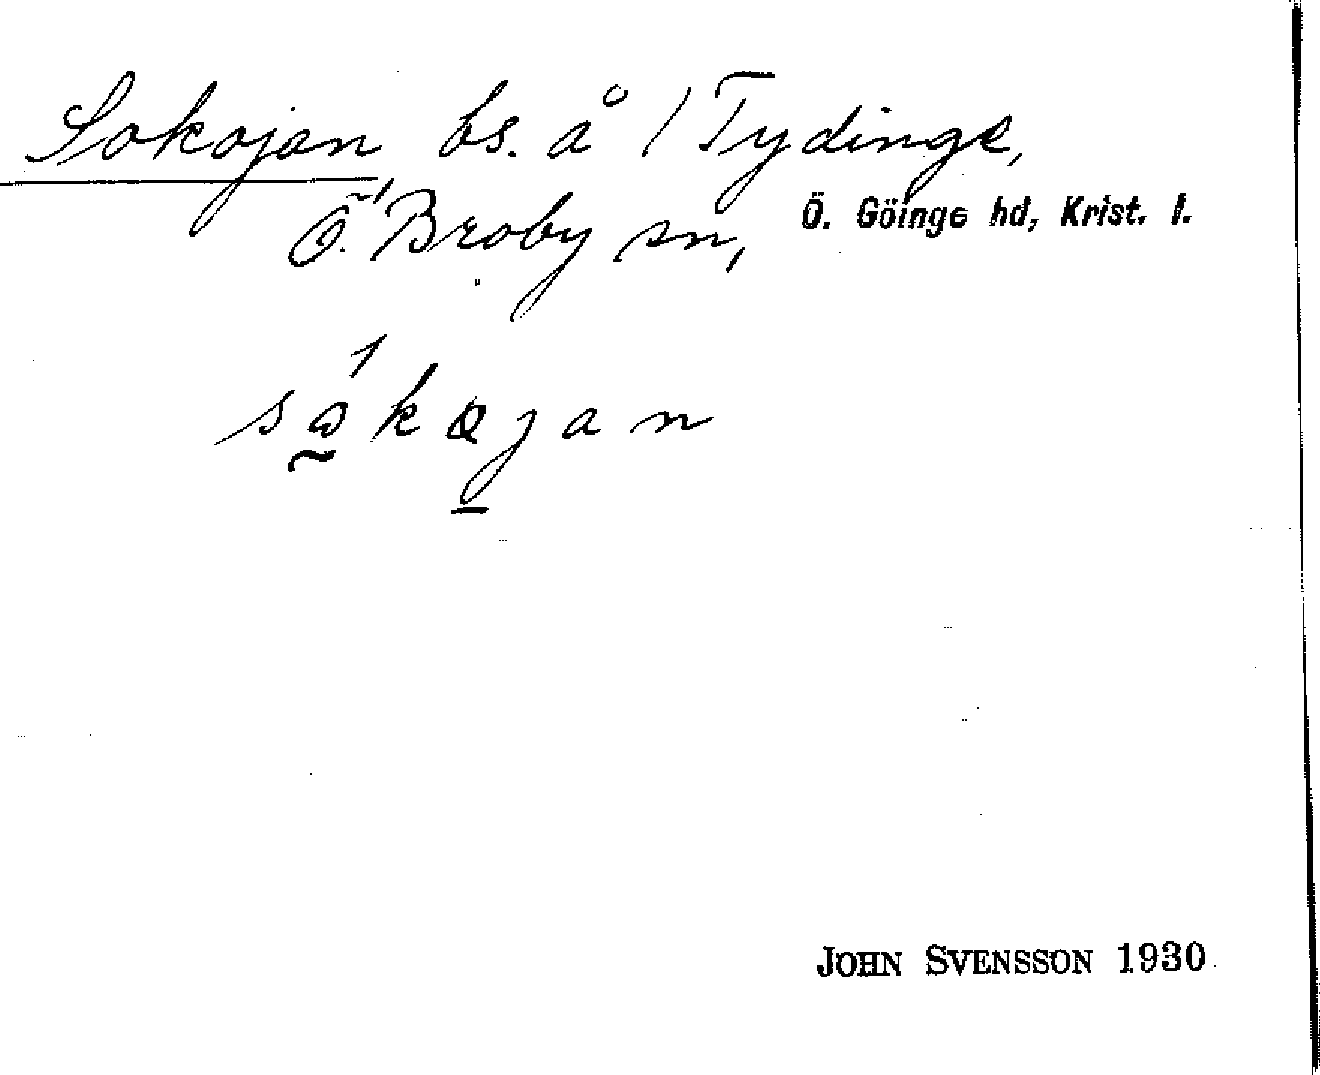 Sokojan, bs. å 1 Tydinge,
Ö. Broby sn, Ö. Göinge hd, Krist. l.
JOHN SVENSSON 1930